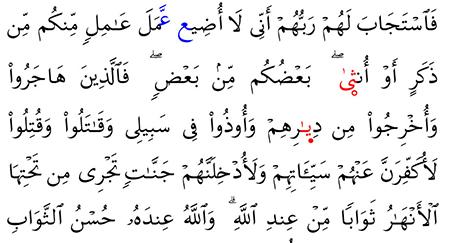 فَٱسْتَجَابَ لَهُمْ رَبُّهُمْ أَنِّى لَا أُضِيع عَّمَلَ عَـٰمِلٍ مِّنكُم مِّن
ذَكَرٍ أَوْ أُنثٜىٰ ۖ بَعْضُكُم مِّنۢ بَعْضٍ ۖ فَٱلَّذِينَ هَاجَرُوا۟
وَأُخْرِجُوا۟ مِن دِيٜـٰرِهِمْ وَأُوذُوا۟ فِى سَبِيلِى وَقَـٰتَلُوا۟ وَقُتِلُوا۟
لَأُكَفِّرَنَّ عَنْهُمْ سَيِّـَٔاتِهِمْ وَلَأُدْخِلَنَّهُمْ جَنَّـٰتٍ تَجْرِى مِن تَحْتِهَا
ٱلْأَنْهَـٰرُ ثَوَابًا مِّنْ عِندِ ٱللَّهِ ۗ وَٱللَّهُ عِندَهُۥ حُسْنُ ٱلثَّوَابِ